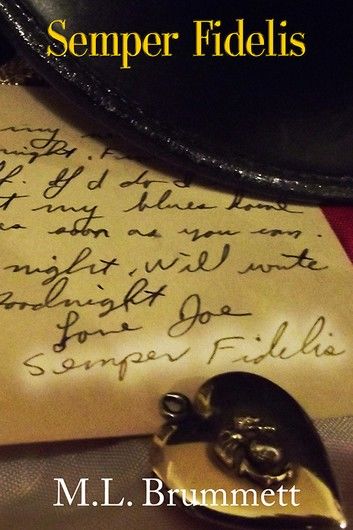 Semper Fidelis
my
night.
If I do I
my blues home
as soon as you can.
night, Will write
Goodnight
Love Joe
Semper Fidelis
M.L. Brummett